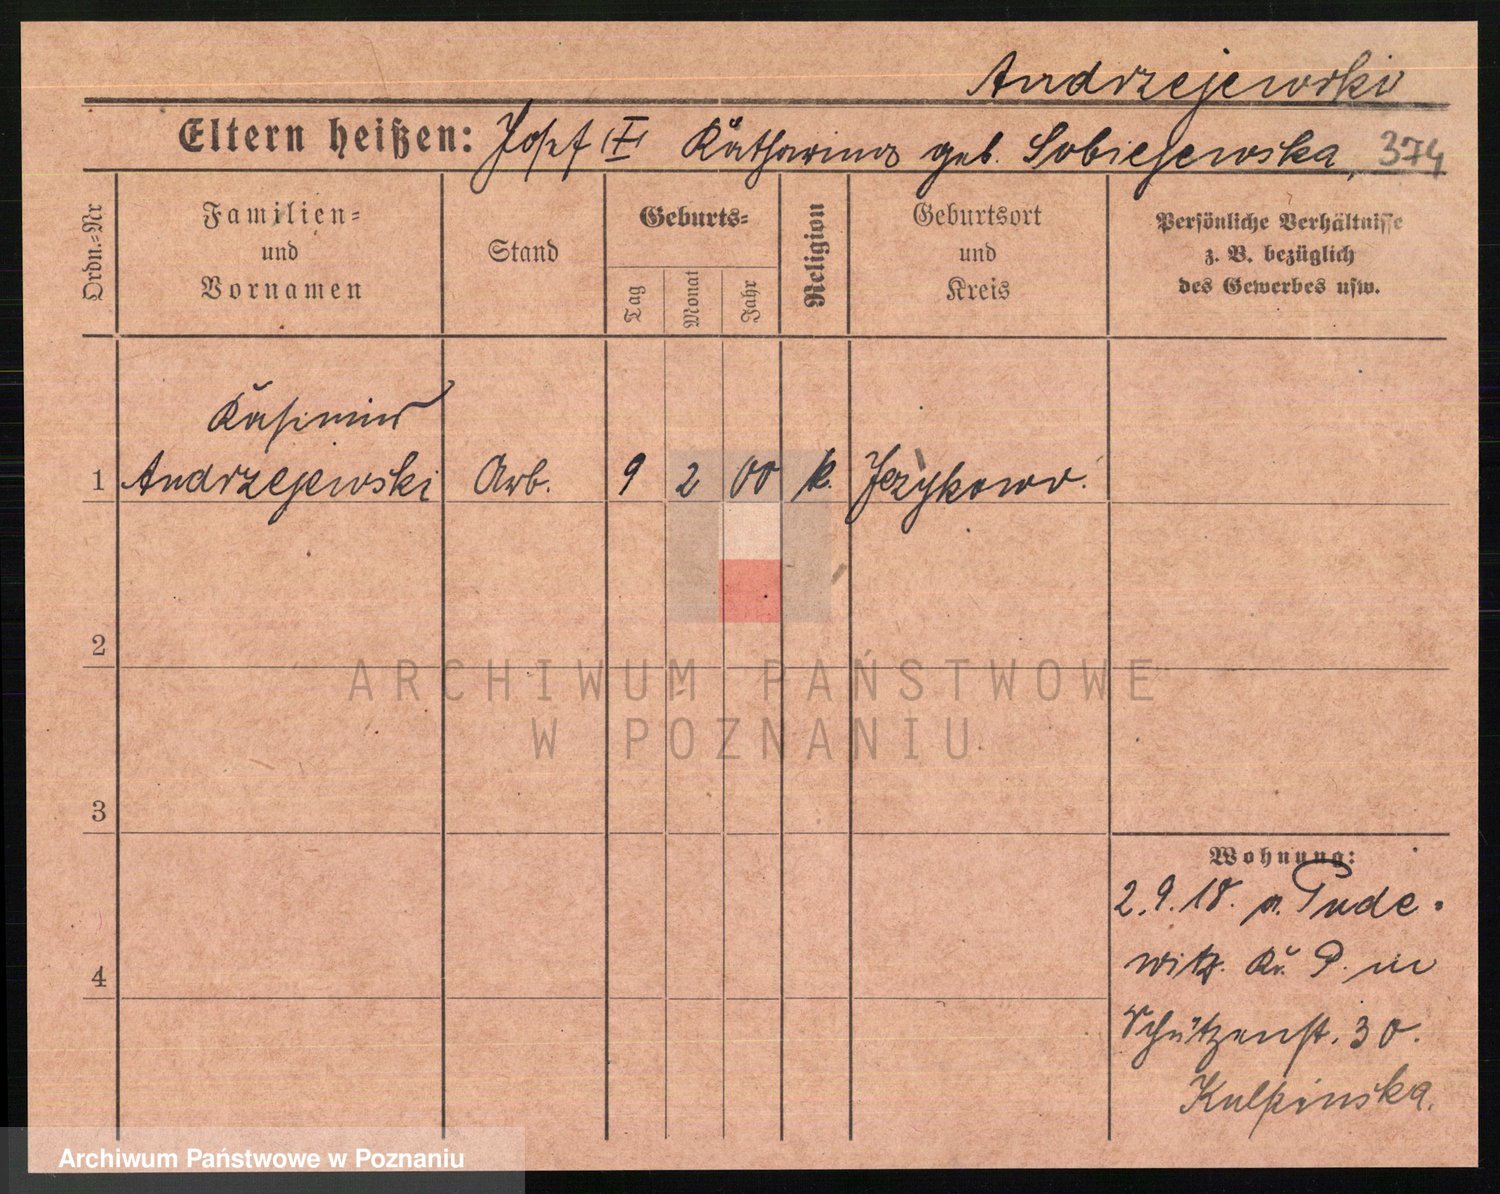 Andrzejewski
Eltern heißen: Josef (†) Katharina geb. Sobiejewska, 374
Ordn.-Nr
Familien- und Vornamen
Stand
Geburts-
Tag
Monat
Jahr
Religion
Geburtsort und Kreis
Persönliche Verhältnisse
z. B. bezüglich
des Gewerbes usw.
Kasimir
1 Andrzejewski Arb. 9 2 00 k. Jezykowo.
2
ARCHIWUM PAŃSTWOWE
W POZNANIU
3
Wohnung:
2.9.18. n. Pude-
witz. Kr. P. in
4
Schützenst. 30.
Kulpinska.
Archiwum Państwowe w Poznaniu